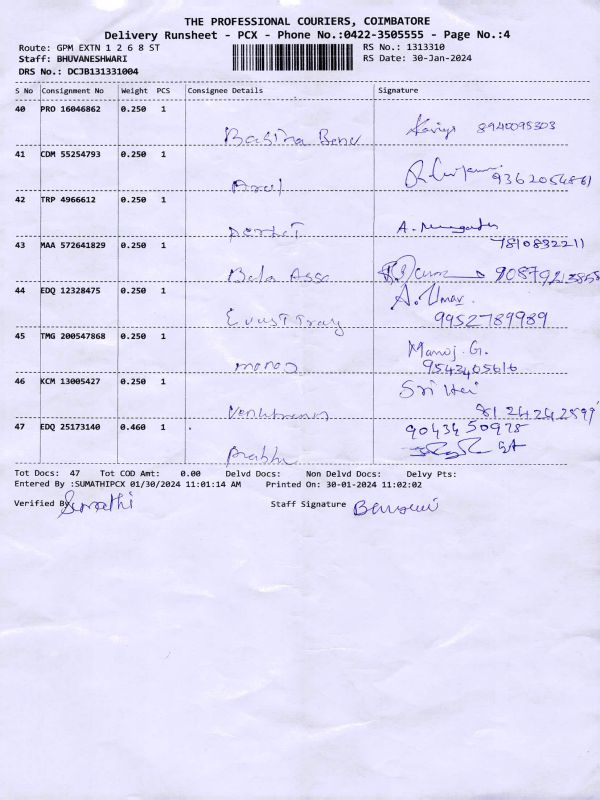 THE PROFESSIONAL COURIERS, COIMBATORE
Delivery Runsheet - PCX - Phone No.:0422-3505555 - Page No.:4
Route: GPM EXTN 1 2 6 8 ST RS No.: 1313310
Staff: BHUVANESHWARI RS Date: 30-Jan-2024
DRS No.: DCJB131331004
S No Consignment No Weight PCS Consignee Details Signature
40 PRO 16046862 0.250 1
8940095303
41 CDM 55254793 0.250 1
Arul 9362054861
42 TRP 4966612 0.250 1
A.
7810832211
43 MAA 572641829 0.250 1
Bala
44 EDQ 12328475 0.250 1
A. Umar.
9952789989
45 TMG 200547868 0.250 1
Manoj. G.
9543405616
46 KCM 13005427 0.250 1
Sri
8124242899
47 EDQ 25173140 0.460 1
9043450978
Prabhu
Tot Docs: 47 Tot COD Amt: 0.00 Delvd Docs: Non Delvd Docs: Delvy Pts:
Entered By :SUMATHIPCX 01/30/2024 11:01:14 AM Printed On: 30-01-2024 11:02:02
Verified By Sumathi Staff Signature